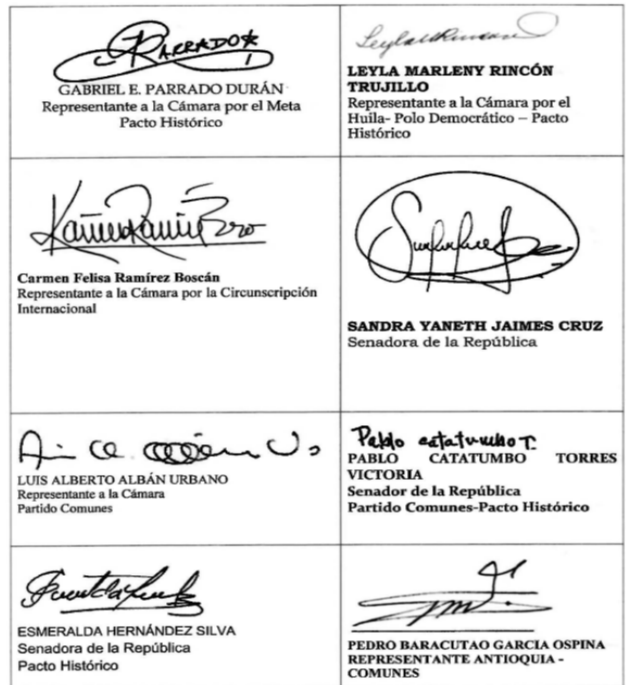 PARRADO
GABRIEL E. PARRADO DURÁN
Representante a la Cámara por el Meta
Pacto Histórico
LEYLA MARLENY RINCÓN
TRUJILLO
Representante a la Cámara por el
Huila- Polo Democrático – Pacto
Histórico
Carmen Felisa Ramírez Boscán
Representante a la Cámara por la Circunscripción
Internacional
SANDRA YANETH JAIMES CRUZ
Senadora de la República
LUIS ALBERTO ALBÁN URBANO
Representante a la Cámara
Partido Comunes
Pablo catatumbo T.
PABLO CATATUMBO TORRES
VICTORIA
Senador de la República
Partido Comunes-Pacto Histórico
ESMERALDA HERNÁNDEZ SILVA
Senadora de la República
Pacto Histórico
PEDRO BARACUTAO GARCIA OSPINA
REPRESENTANTE ANTIOQUIA -
COMUNES